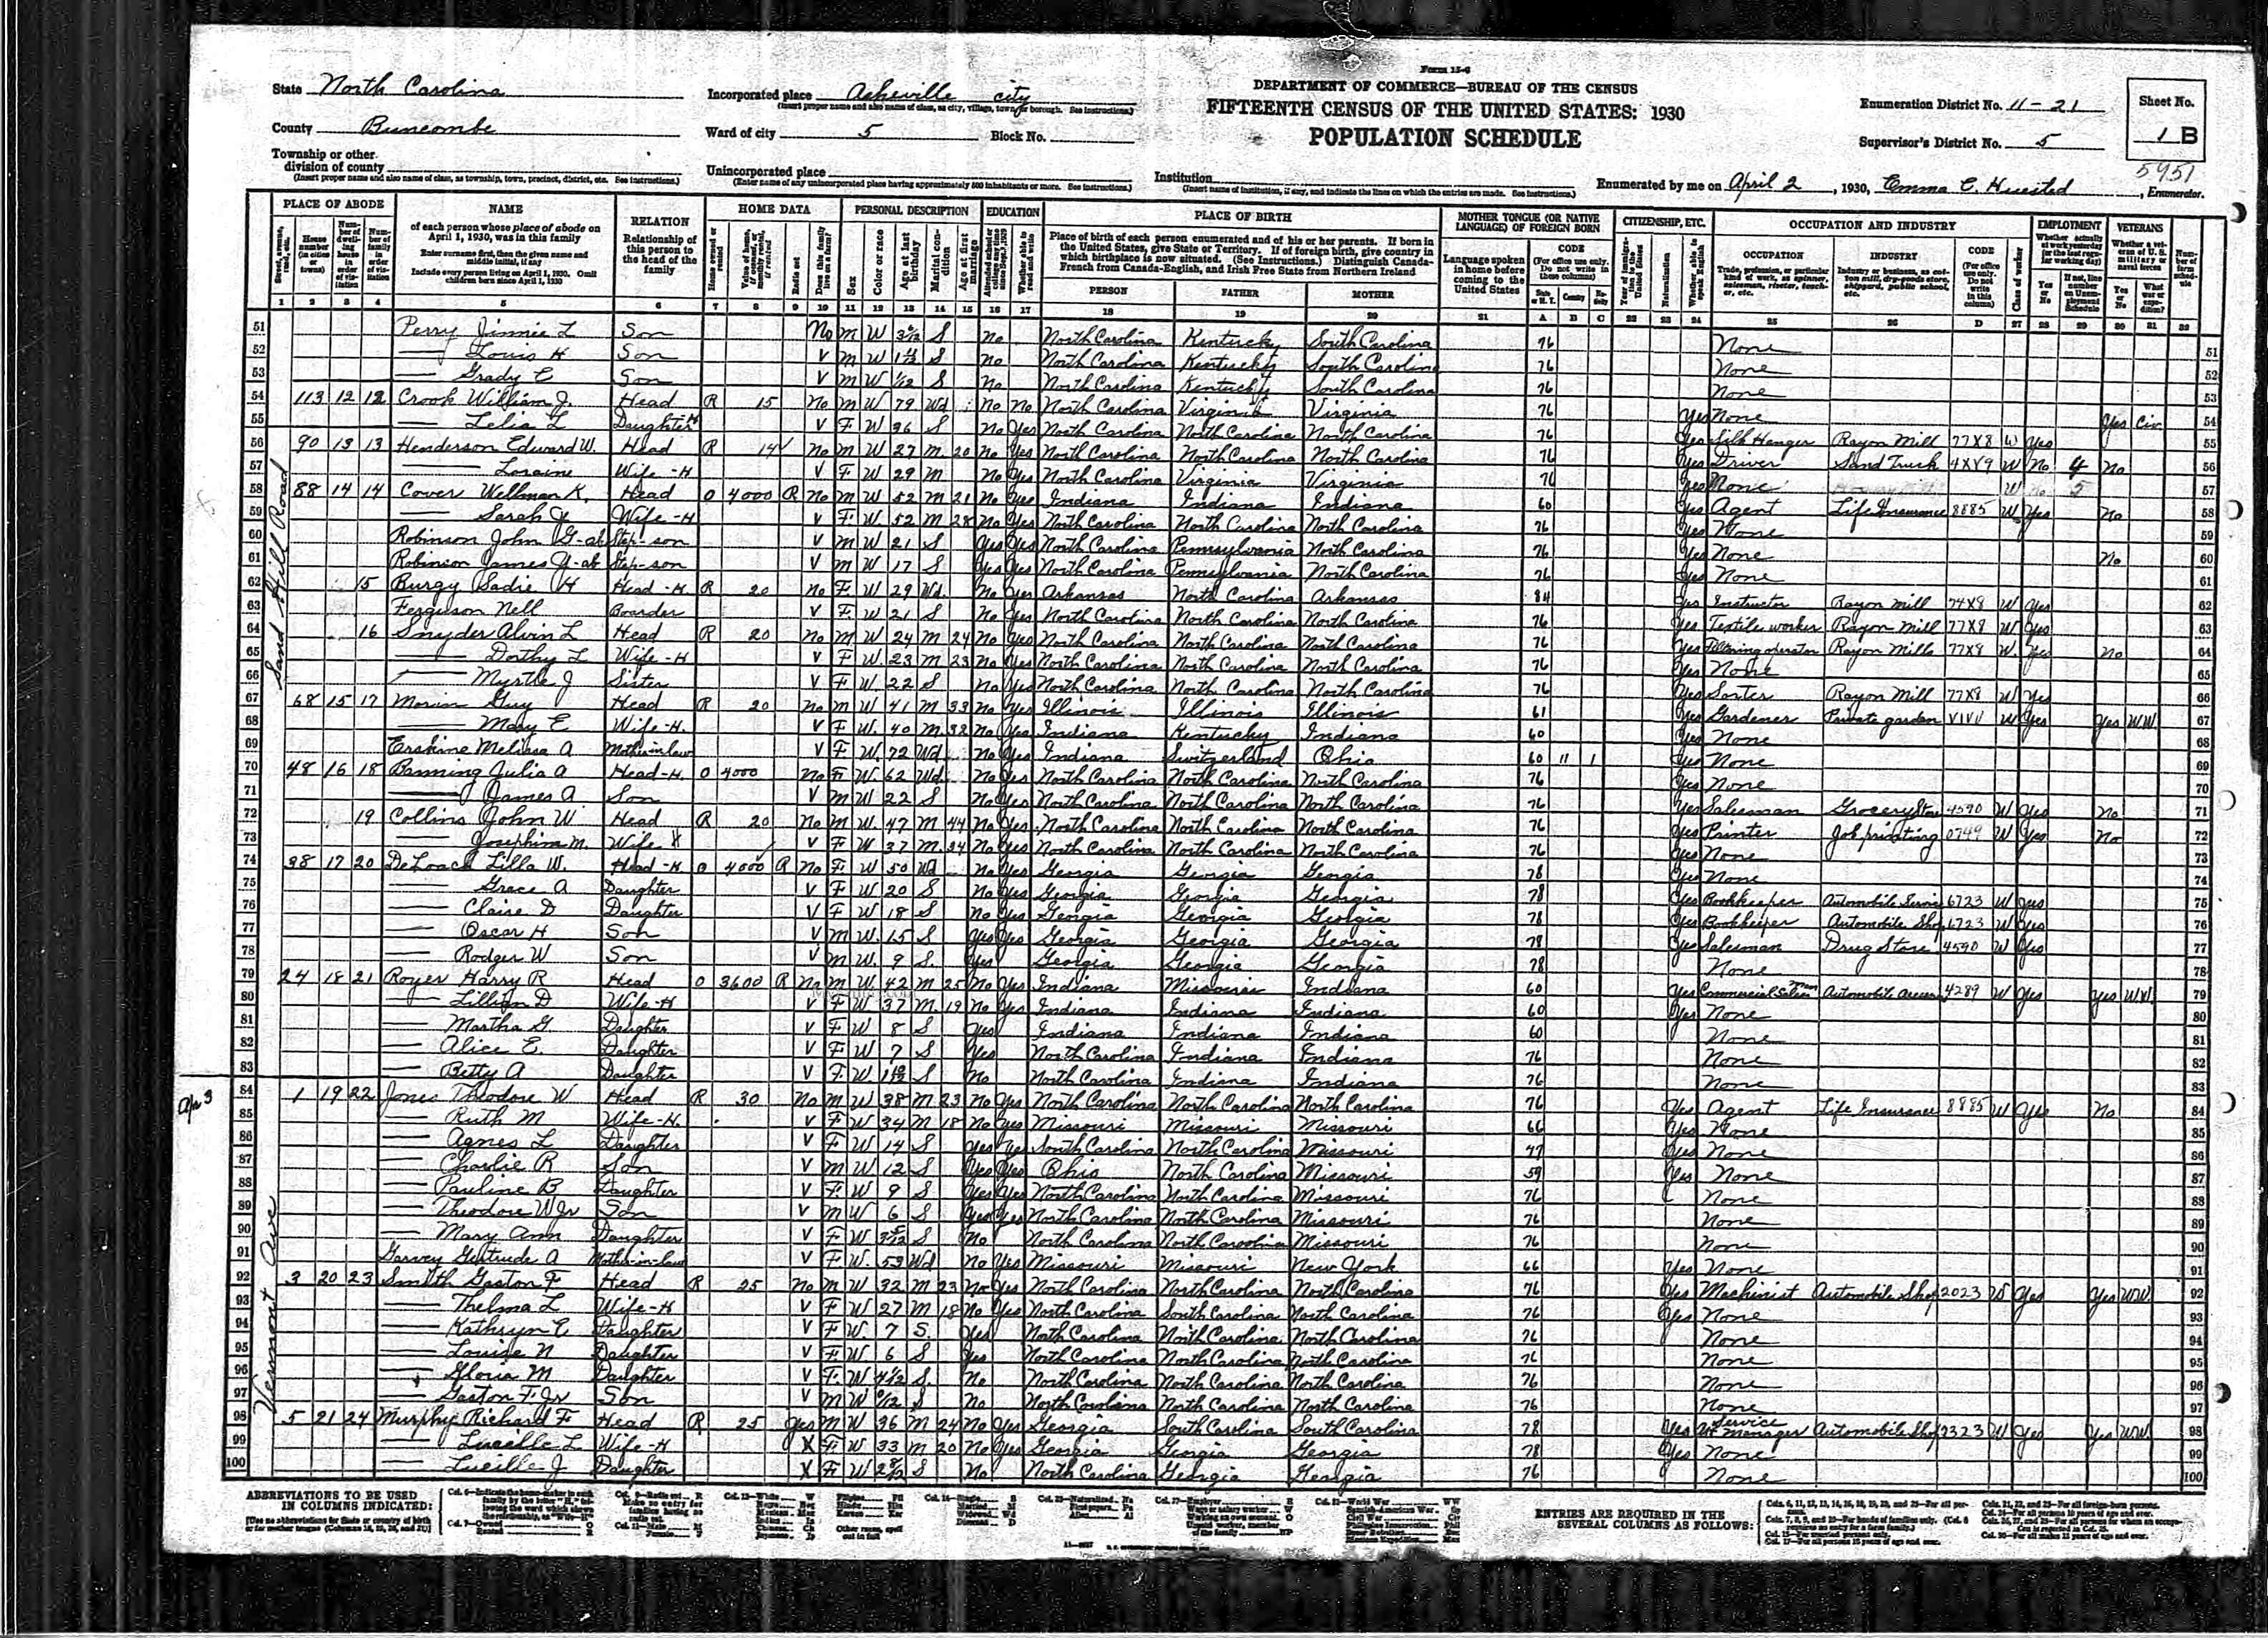 Form 15-6
DEPARTMENT OF COMMERCE—BUREAU OF THE CENSUS
FIFTEENTH CENSUS OF THE UNITED STATES: 1930
POPULATION SCHEDULE
State North Carolina
County Buncombe
Township or other division of county
(Insert proper name and also name of class, as township, town, precinct, district, etc. See instructions.)
Incorporated place Asheville city
(Insert proper name and also name of class, as city, village, town, or borough. See instructions.)
Ward of city 5 Block No.
Unincorporated place
(Enter name of any unincorporated place having approximately 500 inhabitants or more. See instructions.)
Institution
(Insert name of institution, if any, and indicate the lines on which the entries are made. See instructions.)
Enumeration District No. 11-21
Supervisor's District No. 5
Sheet No. 1 B
5951
Enumerated by me on April 2, 1930, Emma C. Huested, Enumerator.
PLACE OF ABODE NAME RELATION HOME DATA PERSONAL DESCRIPTION EDUCATION PLACE OF BIRTH MOTHER TONGUE (OR NATIVE LANGUAGE) OF FOREIGN BORN CITIZENSHIP, ETC. OCCUPATION AND INDUSTRY EMPLOYMENT VETERANS
Sand Hill Road
51 Perry Jimmie L Son No M W 3 S No North Carolina Kentucky South Carolina 76 None 51
52 — Louis H Son V M W S No North Carolina Kentucky South Carolina 76 None 52
53 — Grady C Son V M W 1/12 S No North Carolina Kentucky South Carolina 76 None 53
54 113 12 12 Crook William J. Head R 15 No M W 79 Wd No No North Carolina Virginia Virginia 76 Yes None Yes Civ 54
55 — Lelia L Daughter-H V F W 36 S No Yes North Carolina North Carolina North Carolina 76 Yes Silk Hanger Rayon Mill 77X8 W Yes 55
56 90 13 13 Henderson Edward W. Head R 14 No M W 27 M 20 No Yes North Carolina North Carolina North Carolina 76 Yes Driver Sand Truck 4XY9 W No 4 No 56
57 — Loraine Wife-H V F W 29 M No Yes North Carolina Virginia Virginia 76 Yes None W No 5 57
58 88 14 14 Cover Wellman K. Head O 4000 R No M W 52 M 21 No Yes Indiana Indiana Indiana 60 Yes Agent Life Insurance 8885 W Yes No 58
59 — Sarah Y Wife-H V F W 52 M 28 No Yes North Carolina North Carolina North Carolina 76 Yes None 59
60 Robinson John G-ab Step-son V M W 21 S Yes Yes North Carolina Pennsylvania North Carolina 76 Yes None No 60
61 Robinson James Y-ab Step-son V M W 17 S Yes Yes North Carolina Pennsylvania North Carolina 76 Yes None 61
62 15 Burgy Sadie H Head-H R 20 No F W 29 Wd No Yes Arkansas North Carolina Arkansas 84 Yes Instructor Rayon Mill 74X8 W Yes 62
63 Ferguson Nell Boarder V F W 21 S No Yes North Carolina North Carolina North Carolina 76 Yes Textile worker Rayon Mill 77X8 W Yes 63
64 16 Snyder Alvin L Head R 20 No M W 24 M 24 No Yes North Carolina North Carolina North Carolina 76 Yes Rayon Mill 77X8 W Yes No 64
65 — Dorthy L Wife-H V F W 23 M 23 No Yes North Carolina North Carolina North Carolina 76 Yes None 65
66 — Myrtle J Sister V F W 22 S No Yes North Carolina North Carolina North Carolina 76 Yes Sorter Rayon Mill 77X8 W Yes 66
67 68 15 17 Morin Guy Head R 20 No M W 41 M 33 No Yes Illinois Illinois Illinois 61 Yes Gardener Private garden VIVV W Yes Yes WW 67
68 — Mary E Wife-H V F W 40 M 32 No Yes Indiana Kentucky Indiana 60 Yes None 68
69 Erskine Melissa A Mother-in-law V F W 72 Wd No Yes Indiana Switzerland Ohio 60 11 1 Yes None 69
70 48 16 18 Banning Julia A Head-H O 4000 No F W 62 Wd No Yes North Carolina North Carolina North Carolina 76 Yes None 70
71 — James A Son V M W 22 S No Yes North Carolina North Carolina North Carolina 76 Yes Salesman Grocery Store 4590 W Yes No 71
72 19 Collins John W Head R 20 No M W 47 M 44 No Yes North Carolina North Carolina North Carolina 76 Yes Printer Job printing 0749 W Yes No 72
73 — Josephine M. Wife H V F W 37 M 34 No Yes North Carolina North Carolina North Carolina 76 Yes None 73
74 38 17 20 DeLoach Lilla W. Head-H O 4000 R No F W 50 Wd No Yes Georgia Georgia Georgia 78 Yes None 74
75 — Grace A Daughter V F W 20 S No Yes Georgia Georgia Georgia 78 Yes Bookkeeper Automobile Service 6723 W Yes 75
76 — Claire D Daughter V F W 18 S No Yes Georgia Georgia Georgia 78 Yes Bookkeeper Automobile Shop 6723 W Yes 76
77 — Oscar H Son V M W 15 S Yes Yes Georgia Georgia Georgia 78 Yes Salesman Drug Store 4590 W Yes 77
78 — Rodger W Son V M W 9 S Yes Georgia Georgia Georgia 78 None 78
79 24 18 21 Royer Harry R Head O 3600 R No M W 42 M 25 No Yes Indiana Missouri Indiana 60 Yes Commercial Salesman Automobile 4289 W Yes Yes WW 79
80 — Lillian D Wife-H V F W 37 M 19 No Yes Indiana Indiana Indiana 60 Yes None 80
81 — Martha G. Daughter V F W 8 S Yes Indiana Indiana Indiana 60 None 81
82 — Alice E. Daughter V F W 7 S Yes North Carolina Indiana Indiana 76 None 82
83 — Betty A Daughter V F W S No North Carolina Indiana Indiana 76 None 83
Apr 3
Vermont Ave
84 1 19 22 Jones Theodore W Head R 30 No M W 38 M 23 No Yes North Carolina North Carolina North Carolina 76 Yes Agent Life Insurance 8885 W Yes No 84
85 — Ruth M Wife-H. V F W 34 M 18 No Yes Missouri Missouri Missouri 66 Yes None 85
86 — Agnes L Daughter V F W 14 S Yes Yes South Carolina North Carolina Missouri 77 Yes None 86
87 — Charlie R Son V M W 12 S Yes Yes Ohio North Carolina Missouri 59 Yes None 87
88 — Pauline B Daughter V F W 9 S Yes Yes North Carolina North Carolina Missouri 76 None 88
89 — Theodore W Jr Son V M W 6 S Yes Yes North Carolina North Carolina Missouri 76 None 89
90 — Mary Ann Daughter V F W S No North Carolina North Carolina Missouri 76 None 90
91 Garvey Gertrude A Mother-in-law V F W 53 Wd No Yes Missouri Missouri New York 66 Yes None 91
92 3 20 23 Smith Gaston F Head R 25 No M W 32 M 23 No Yes North Carolina North Carolina North Carolina 76 Yes Machinist Automobile Shop 2023 W Yes Yes WW 92
93 — Thelma L Wife-H V F W 27 M 18 No Yes North Carolina South Carolina North Carolina 76 Yes None 93
94 — Kathryn E Daughter V F W 7 S. Yes North Carolina North Carolina North Carolina 76 None 94
95 — Louise N Daughter V F W 6 S Yes North Carolina North Carolina North Carolina 76 None 95
96 — Gloria M Daughter V F W S No North Carolina North Carolina North Carolina 76 None 96
97 — Gaston F. Jr Son V M W S No North Carolina North Carolina North Carolina 76 None 97
98 5 21 24 Murphy Richard F Head R 25 Yes M W 36 M 24 No Yes Georgia South Carolina South Carolina 78 Yes Service Manager Automobile Shop 2323 W Yes Yes WW 98
99 — Lucille L Wife-H X F W 33 M 20 No Yes Georgia Georgia Georgia 78 Yes None 99
100 — Lucille J Daughter X F W S No North Carolina Georgia Georgia 76 None 100
ABBREVIATIONS TO BE USED IN COLUMNS INDICATED:
ENTRIES ARE REQUIRED IN THE SEVERAL COLUMNS AS FOLLOWS: